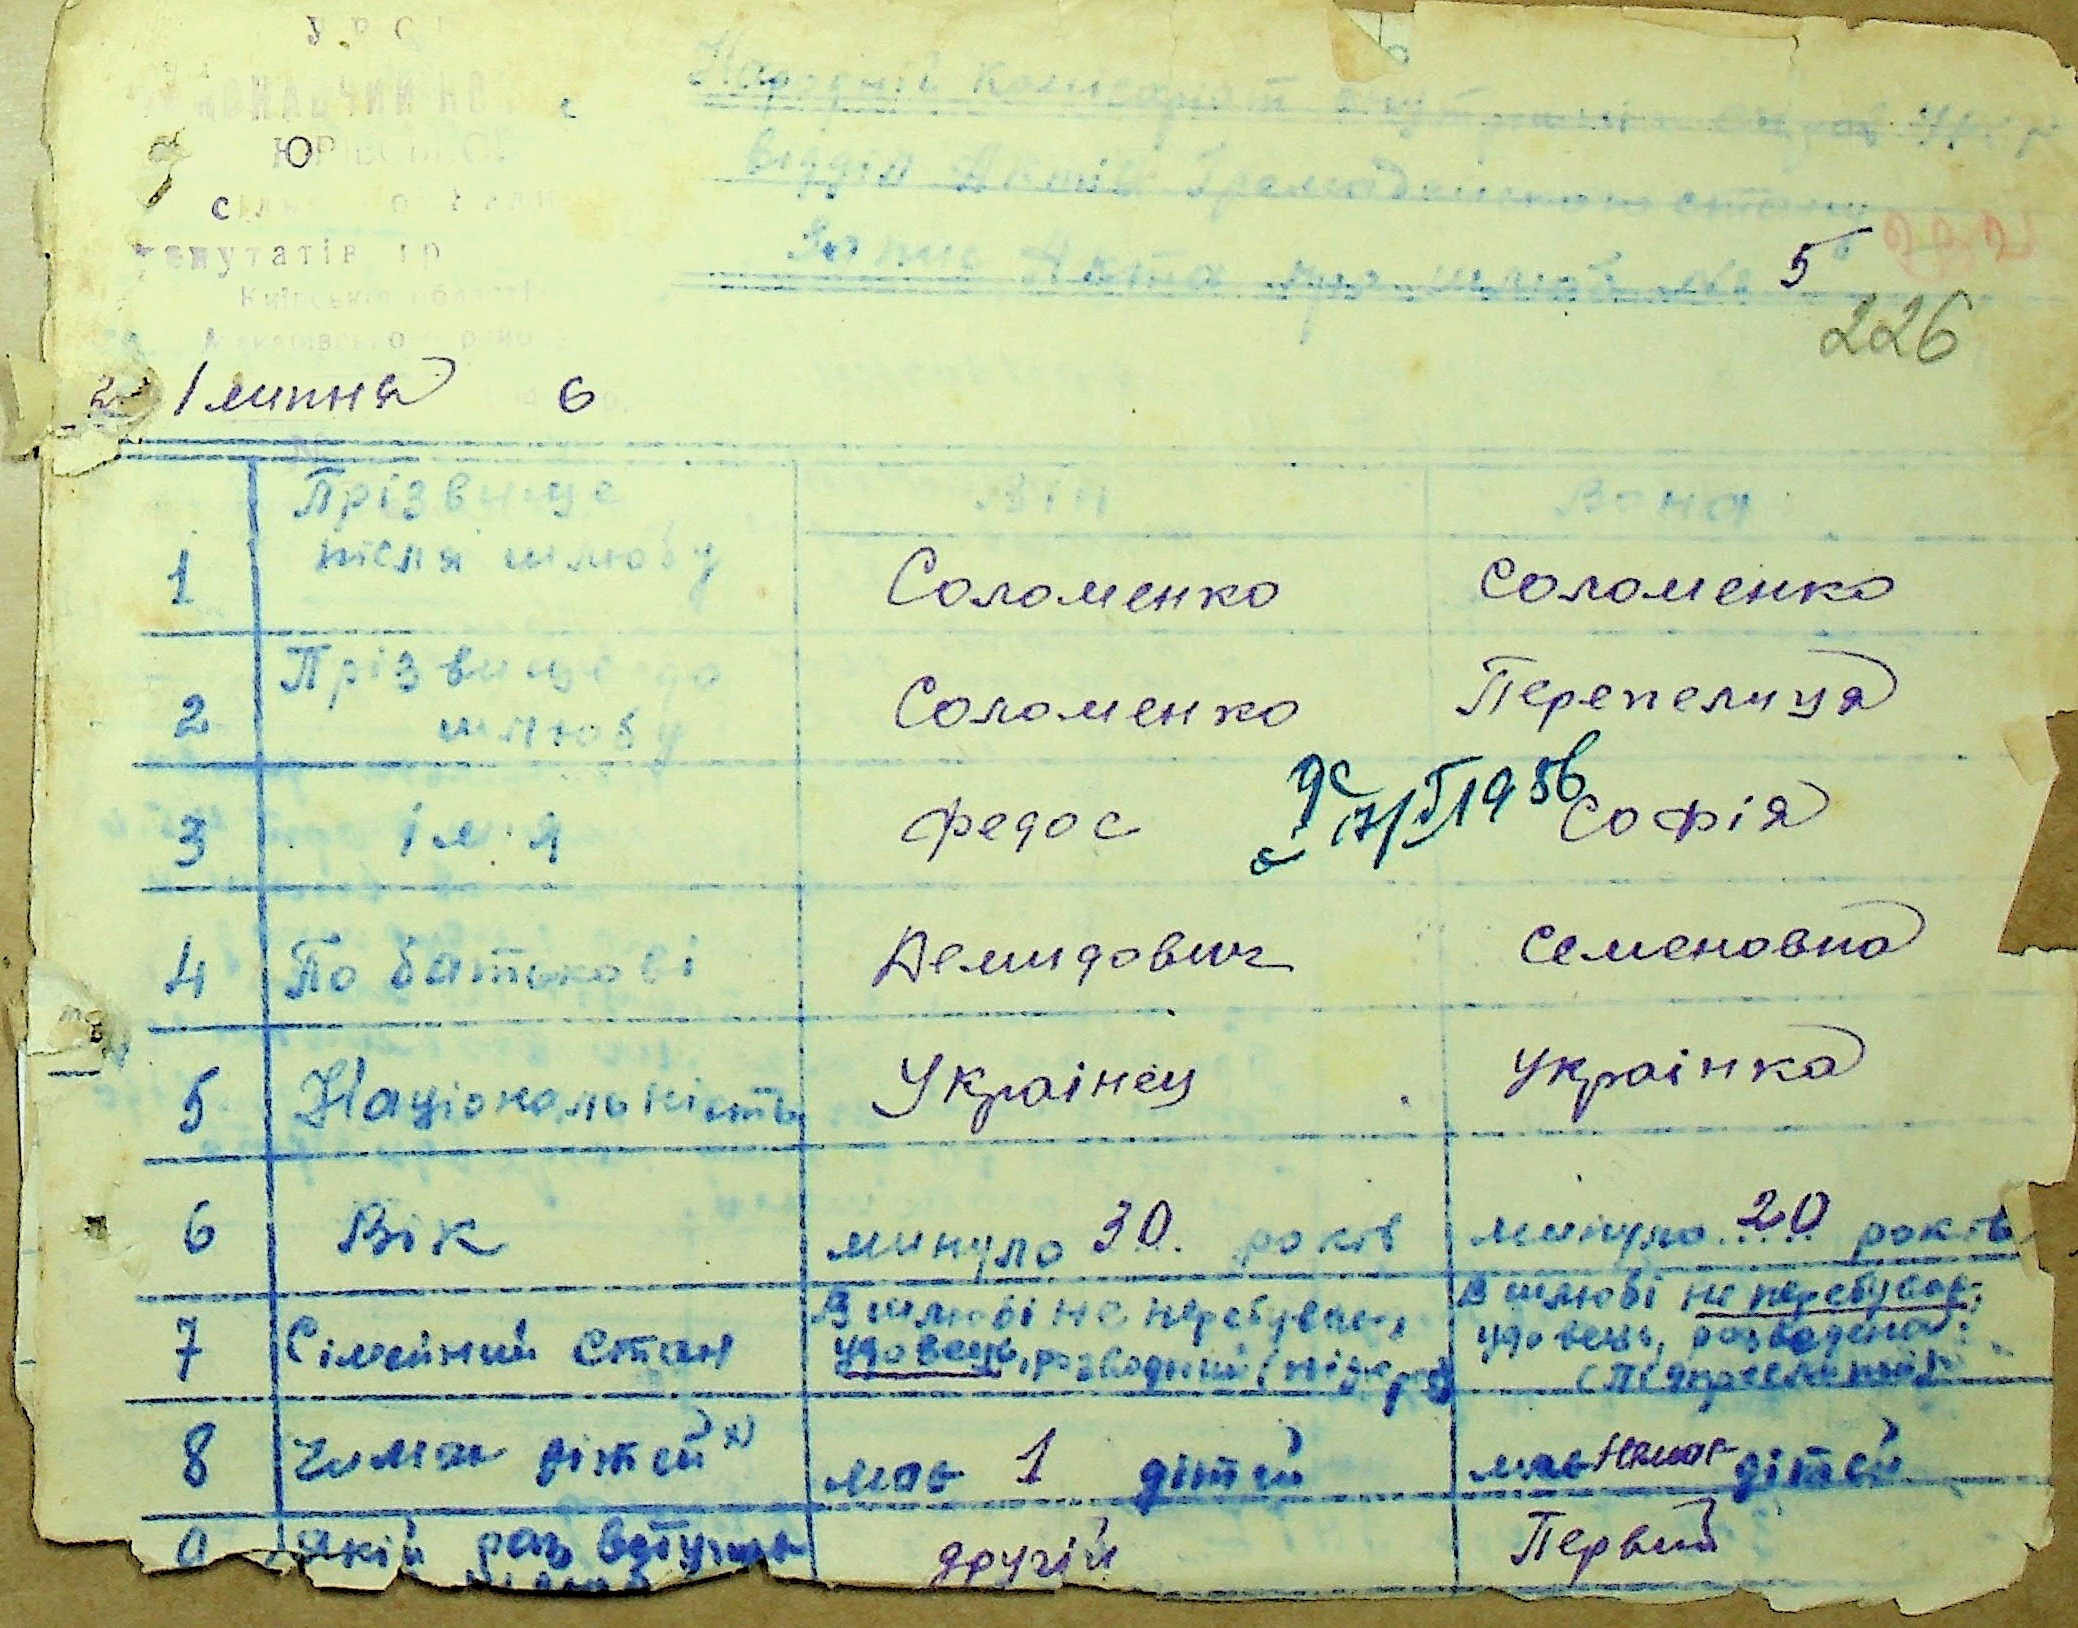 УРСР
ЮРІВСЬКОЇ
депутатів тр
Київської області
Макарівського р-ну
Народній комісаріат внутрішніх справ УРСР
Відділ Актів Громадянського стану
Запис Акта про шлюб № 5
226
21 липня 6
Він Вона
1 Прізвище після шлюбу Соломенко Соломенко
2 Прізвище до шлюбу Соломенко Перепелиця
3 ім'я федос Софія
17/V 1956
4 По батькові Демидович Семеновна
5 Національність Українец Українка
6 Вік минуло 30 років минуло 20 років
7 Сімейний стан В шлюбі не перебував, В шлюбі не перебувал;
удовець, розводений удовець, розведена:
(Підкреслити)
8 Число дітей х) має 1 дітей має немає дітей
9 Який раз вступає другій Первий